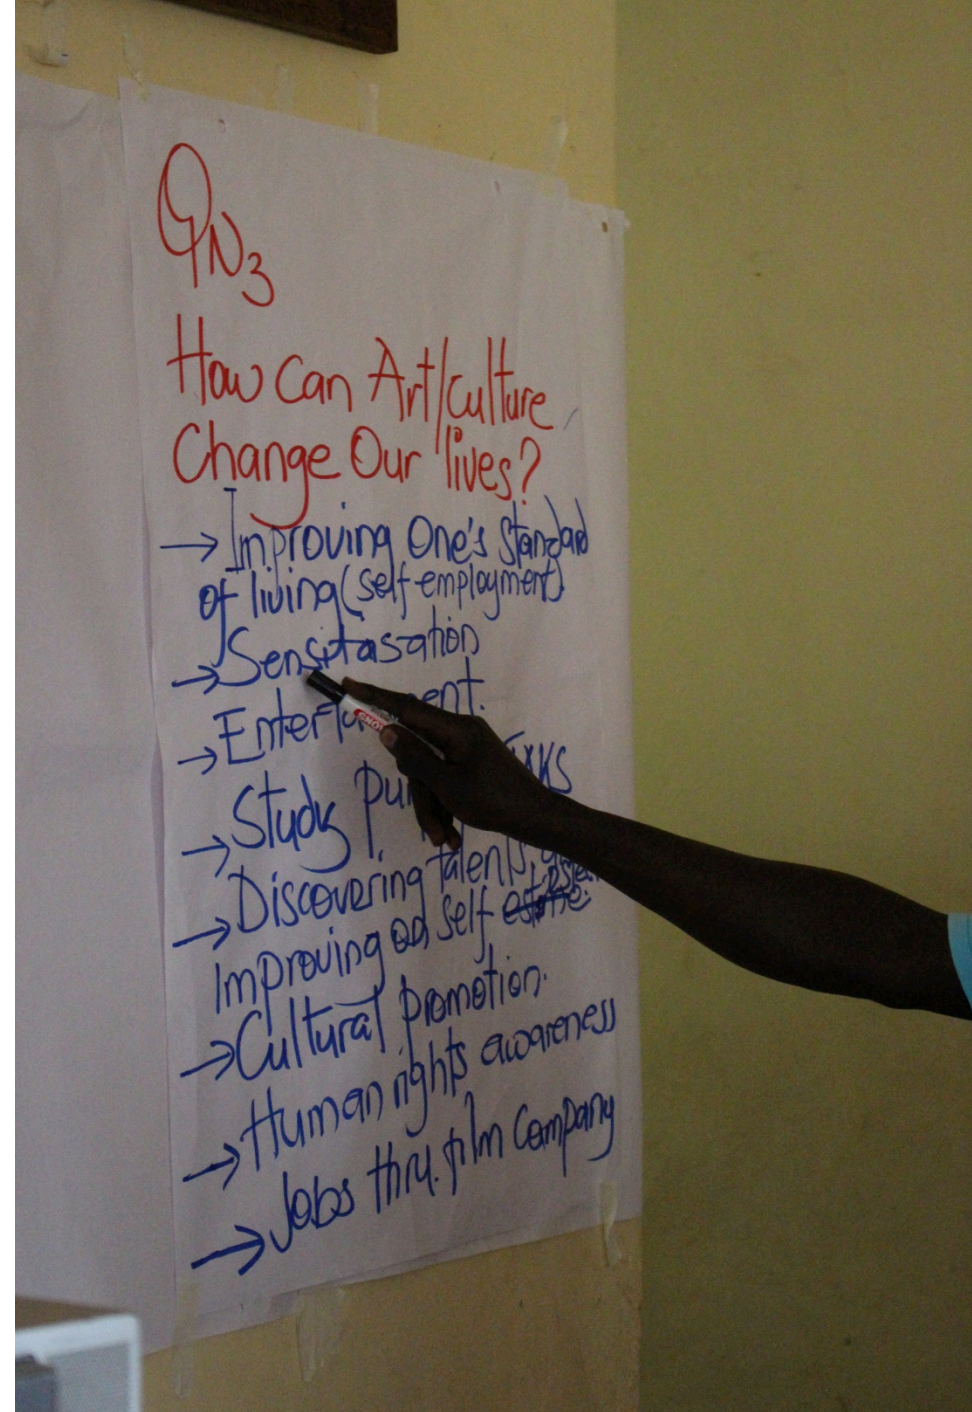 QN3
How Can Art/culture
Change Our lives?
→ Improving One's Standard
of living (self employment)
→ Sensitasation
→ 
→ Study
→ Discovering talents,
Improving on self estime
→ Cultural promotion.
→ Human rights awareness
→ Jobs thru. film Company